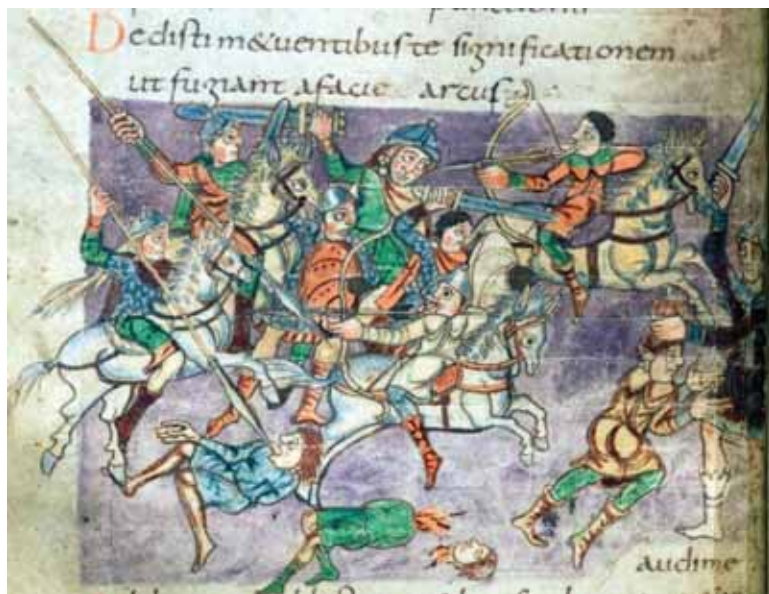 Dedisti m&uentibus te significationem
ut fugiant afacie arcus
audime